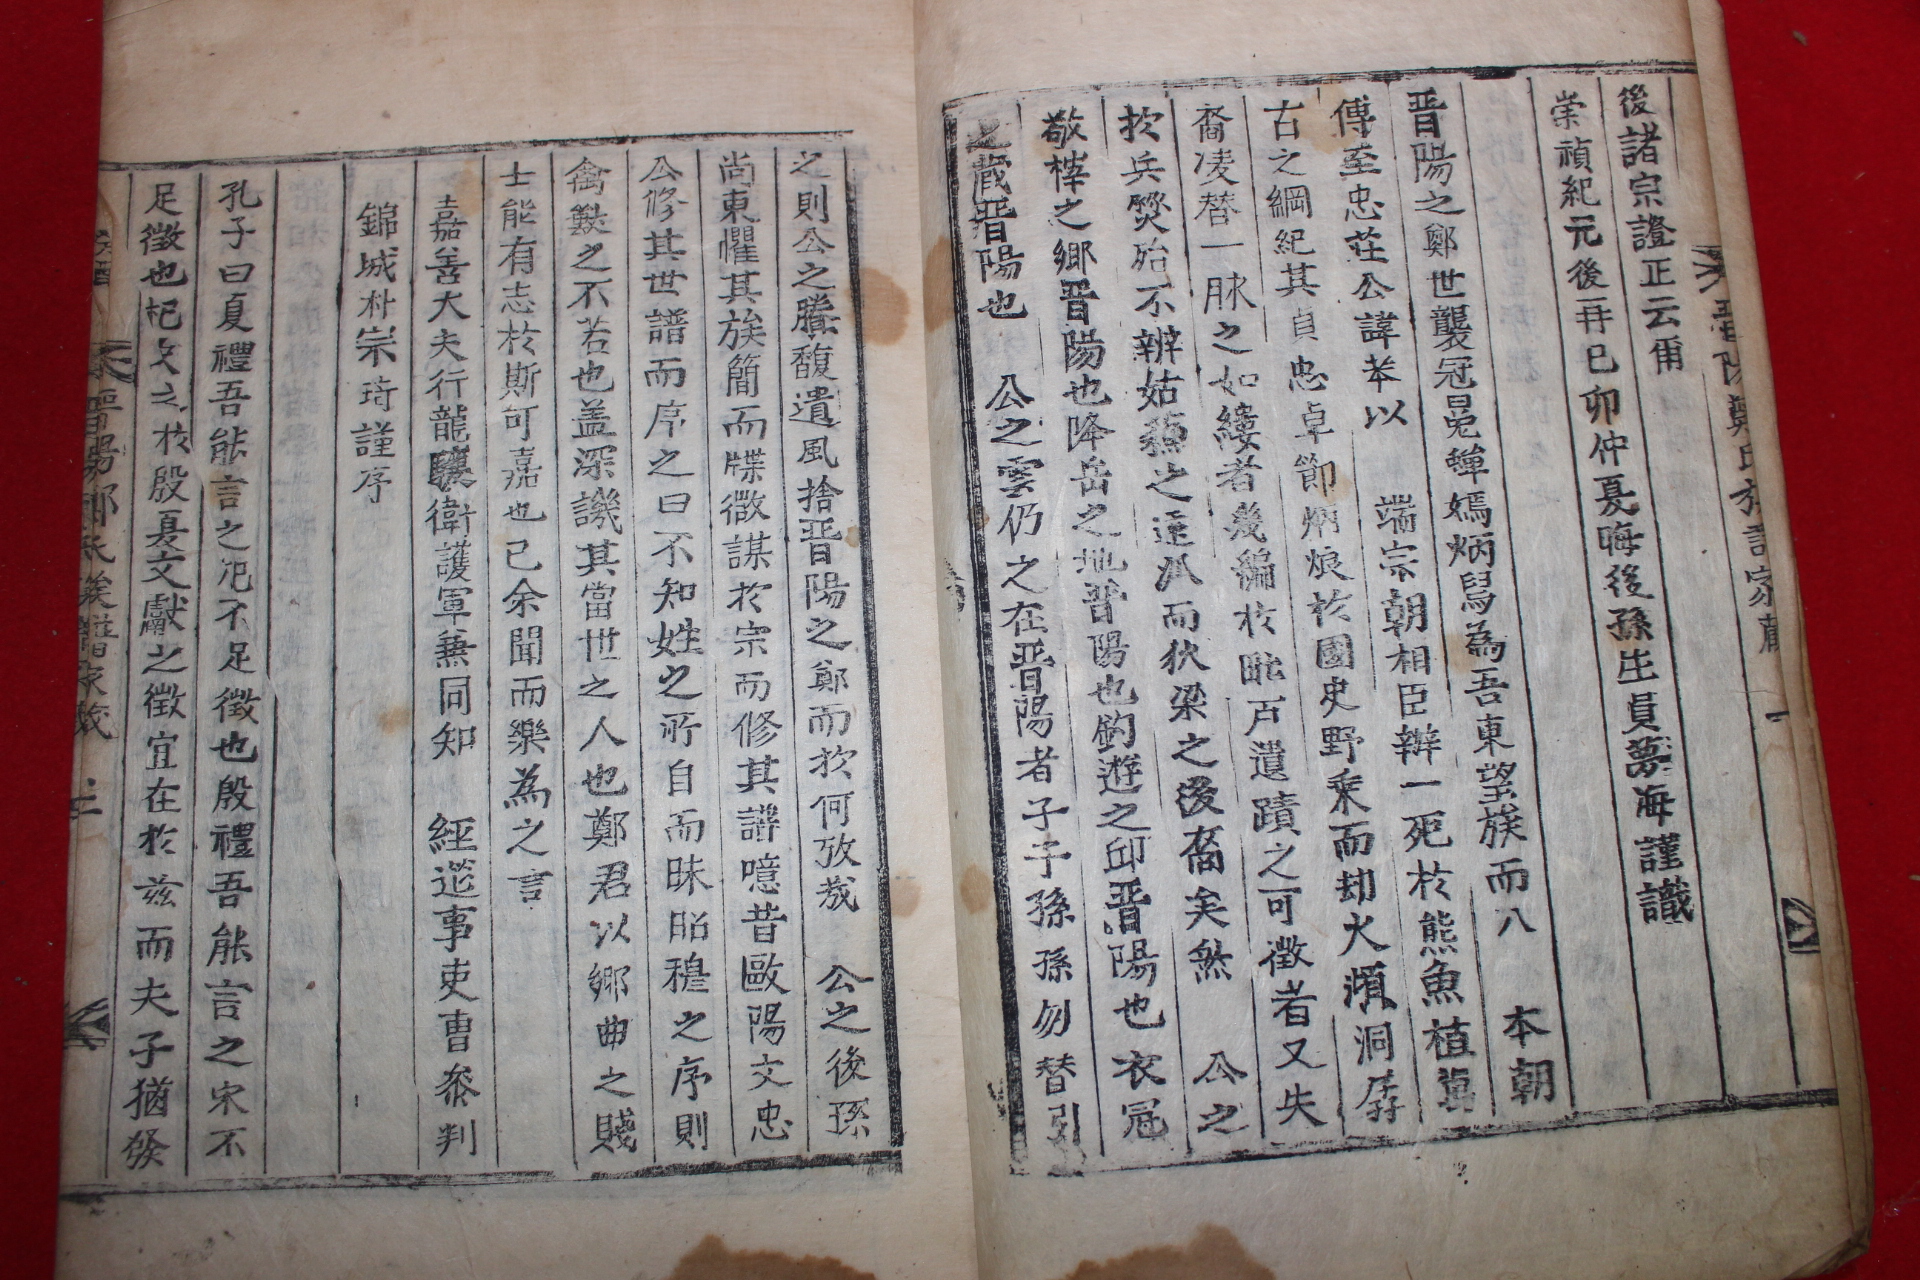 晋陽鄭氏族譜家藏 一
後諸宗證正云甭
崇禎紀元後再己卯仲夏晦後孫生員夢海謹識
晋陽之鄭世襲冠冕蟬嫣炳舄為吾東望族而八 本朝
傳至忠莊公諱苯以 端宗朝相臣辦一死於熊魚植萬
古之綱紀其貞忠卓節炳烺於國史野乘而刧火澒洞孱
裔凌替一脉之如縷者幾編於甿戸遺蹟之可徵者又失
於兵燹殆不辨姑蘓之遠派而狄梁之後裔矣然 公之
敬梓之鄉晋陽也降岳之地晋陽也釣遊之邱晋陽也衣冠
之蔵晋陽也 公之雲仍之在晋陽者子子孫孫勿替引
之則公之賸馥遺風捨晋陽之鄭而於何攷㢤 公之後孫
尚東懼其族簡而牒微謀於宗而修其譜噫昔歐陽文忠
公修其世譜而序之曰不知姓之所自而昧昭穆之序則
禽獸之不若也盖深譏其當世之人也鄭君以鄉曲之賤
士能有志於斯可嘉也已余聞而樂為之言
嘉善大夫行龍驤衛護軍兼同知 經筵事吏曹叅判
錦城朴崇琦謹序
孔子曰夏禮吾能言之杞不足徵也殷禮吾能言之宋不
足徵也杞文之於殷夏文獻之徵宜在於兹而夫子猶發
晋陽鄭氏族譜家藏 二